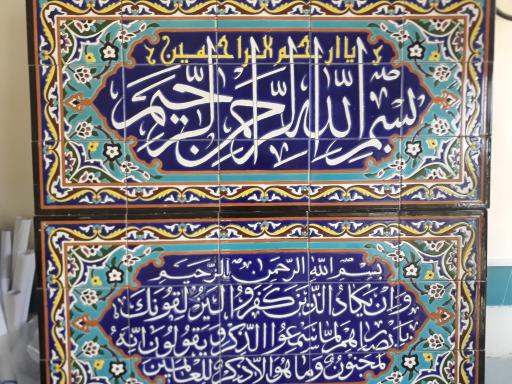 یا ارحم الراحمین
بسم الله الرحمن الرحیم
بسم الله الرحمن الرحیم
وان یکاد الذین کفروا لیزلقونک
بابصارهم لما سمعوا الذکر و یقولون انه
لمجنون و ما هو الا ذکر للعالمین